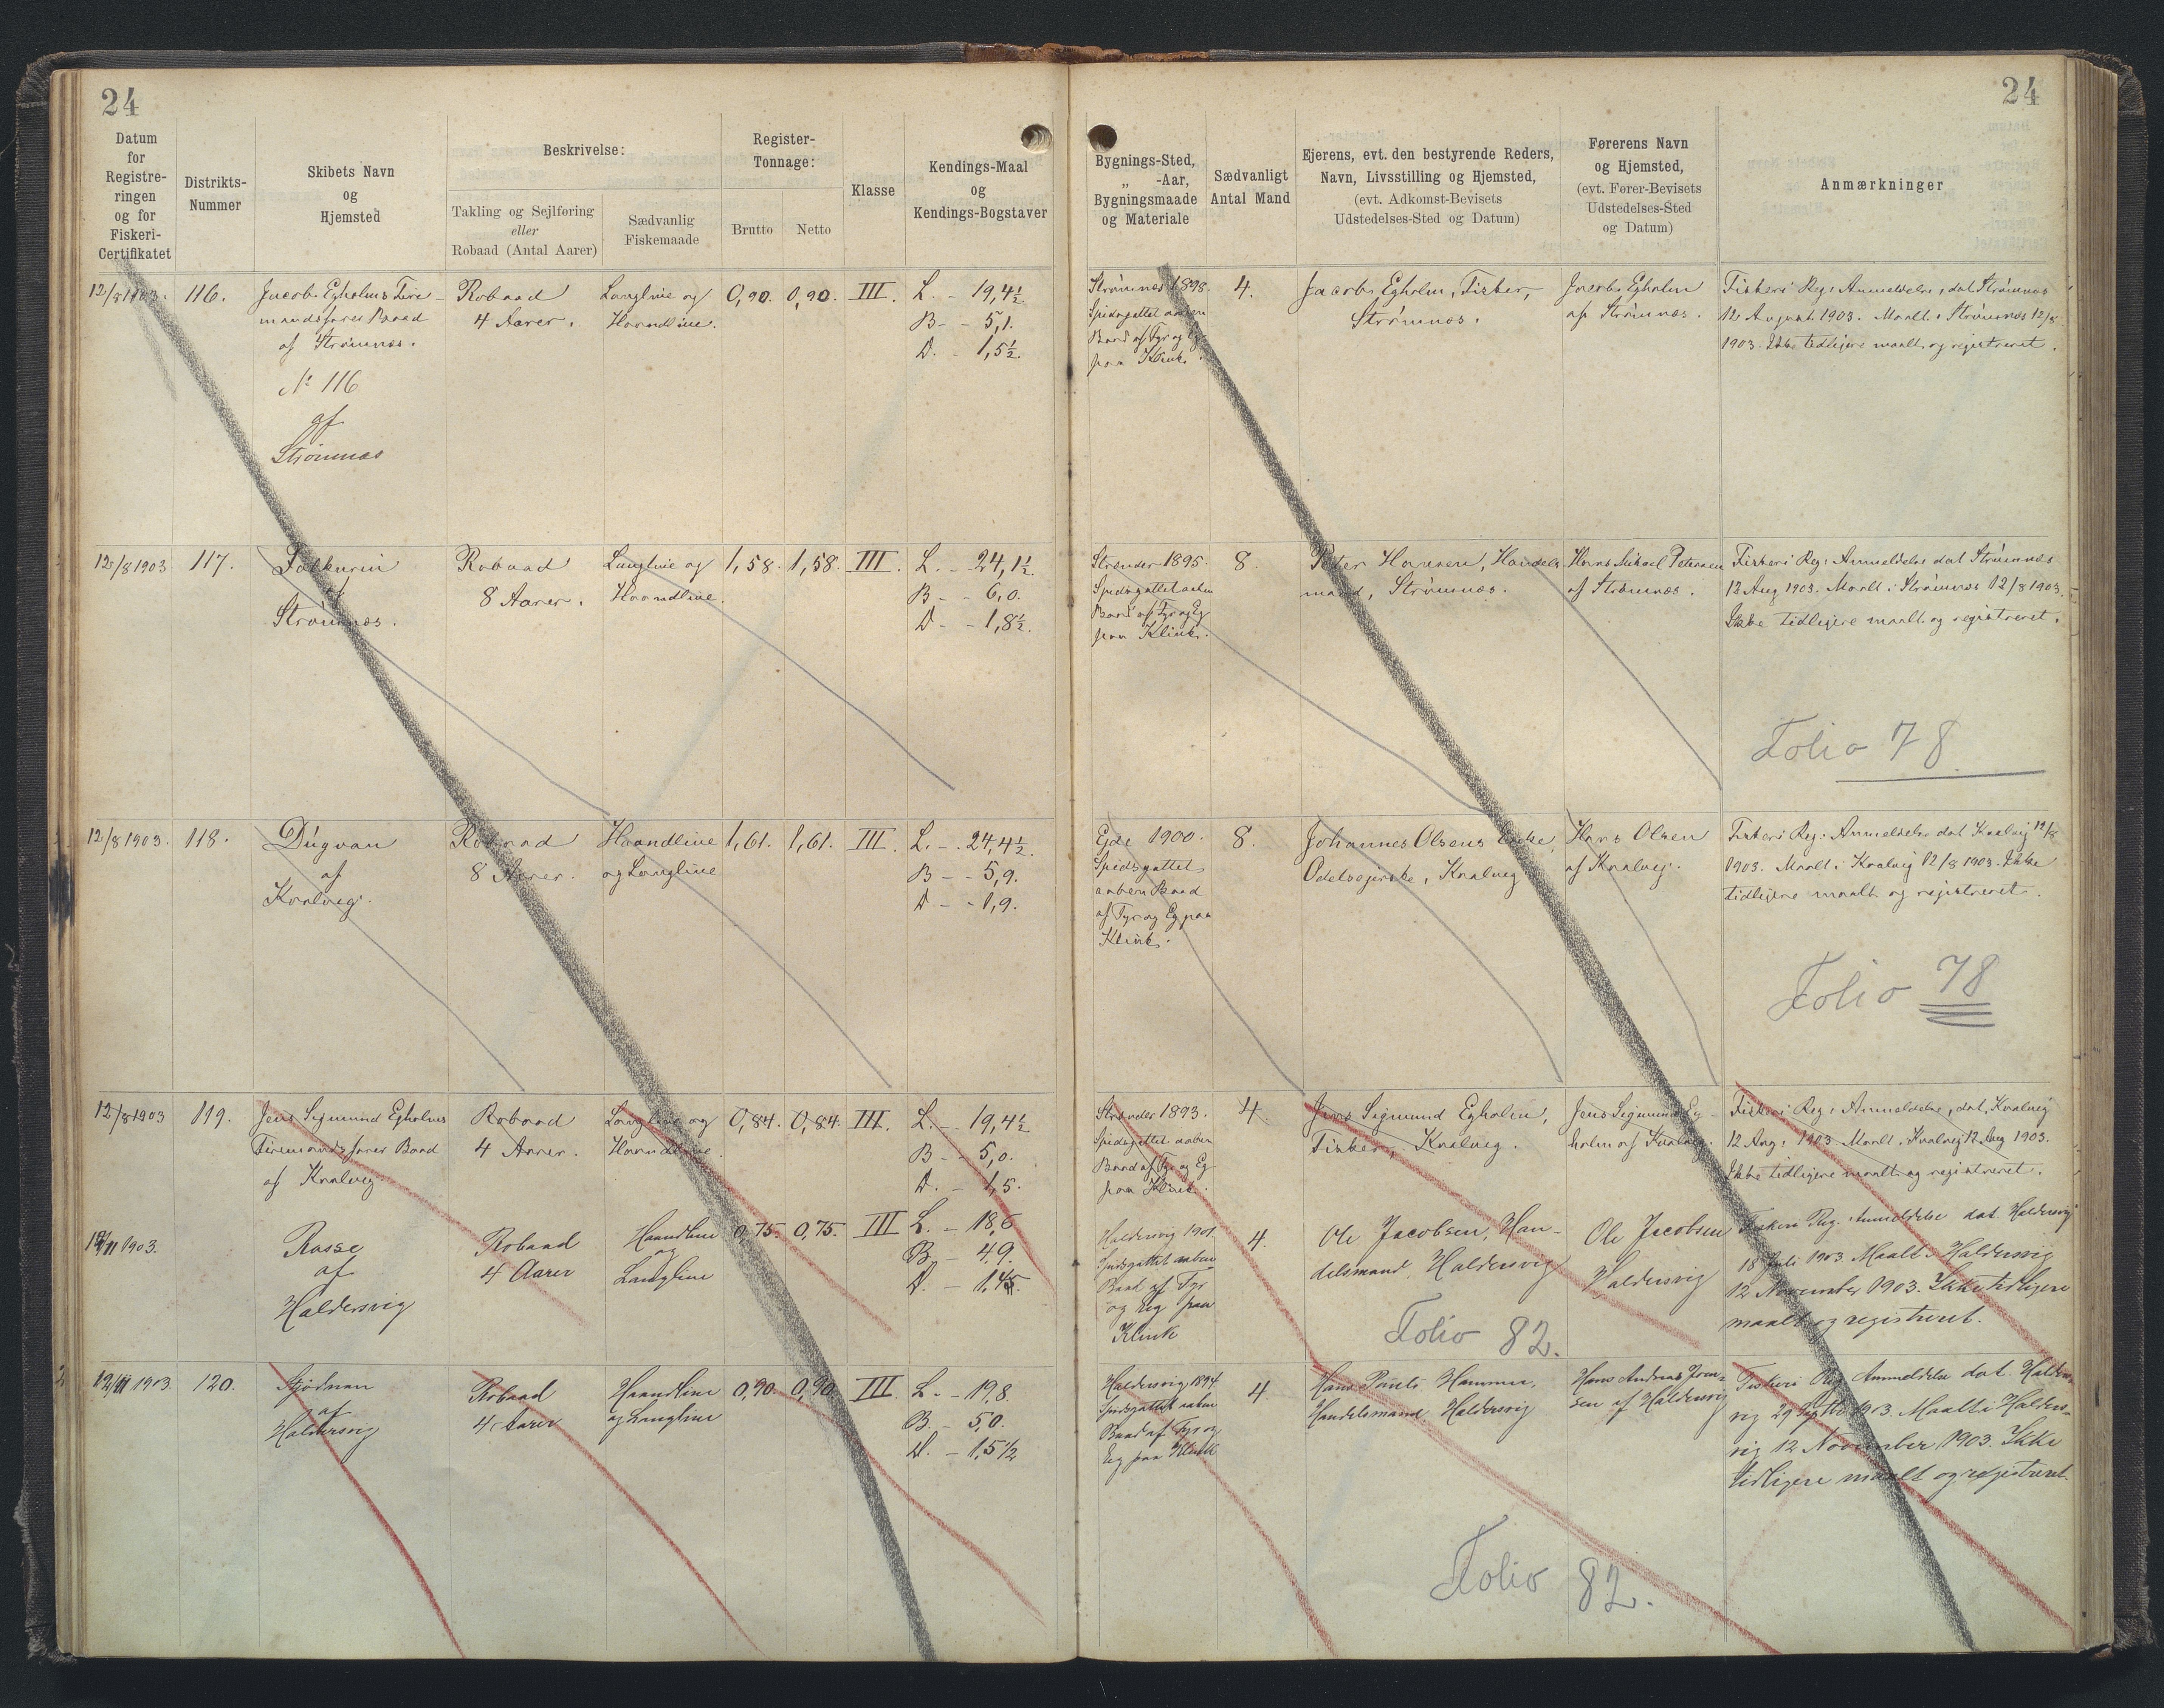 24
24
Datum
for
Registre-
ringen
og for
Fiskeri-
Certifikatet
Distrikts-
Nummer
Skibets Navn
og
Hjemsted
Beskrivelse:
Takling og Sejlføring
eller
Robaad (Antal Aarer)
Sædvanlig
Fiskemaade
Register-
Tonnage:
Brutto
Netto
Klasse
Kendings-Maal
og
Kendings-Bogstaver
Bygnings-Sted,
„ -Aar,
Bygningsmaade
og Materiale
Sædvanligt
Antal Mand
Ejerens, evt. den bestyrende Reders,
Navn, Livsstilling og Hjemsted,
(evt. Adkomst-Bevisets
Udstedelses-Sted og Datum)
Førerens Navn
og Hjemsted,
(evt. Fører-Bevisets
Udstedelses-Sted
og Datum)
Anmærkninger
12/8 1903.
116.
Jacob Egholms Fire-
mandsfarer Baad
af Strømnæs.
№ 116
af
Strømnæs
Robaad
4 Aarer.
Langline og
Haandline.
0,90.
0,90.
III.
L. - 19,4½
B - - 5,1.
D. - 1,5½.
Strømnæs 1898.
Spidsgattet aaben
Baad af Fyr og Eg
paa Klink.
4.
Jacob Egholm, Fisker,
Strømnæs.
Jacob Egholm
af Strømnæs.
Fiskeri Reg: Anmeldelse, dat Strømnæs
12 August 1903. Maalt i Strømnæs 12/8
1903. Ikke tidligere maalt og registreret.
12/8 1903
117.
af
Strømnæs.
Robaad
8 Aarer.
Langline og
Haandline.
1,58.
1,58.
III.
L. - 24,1½.
B - - 6,0.
D - - 1,8½.
Strender 1895.
Spidsgattet aaben
Baad af Fyr og Eg
paa Klink.
8.
Peter Hansen, Handels
mand, Strømnæs.
Hans Mikael Petersen
af Strømnæs.
Fiskeri Reg: Anmeldelse dat Strømnæs
12 Aug 1903. Maalt i Strømnæs 12/8 1903.
Ikke tidligere maalt og registreret.
Folio 78
12/8 1903.
118.
Dúgvan
af
Kvalvig.
Robaad
8 Aarer.
Haandline
og Langline
1,61.
1,61.
III.
L. - 24,4½.
B - - 5,9.
D - - 1,9.
Ejde 1900.
Spidsgattet
aaben Baad
af Fyr og Eg paa
Klink.
8.
Johannes Olsens Enke,
Odelsejerske, Kvalvig
Hans Olsen
af Kvalvig.
Fiskeri Reg: Anmeldelse dat Kvalvig 12/8
1903. Maalt i Kvalvig 12/8 1903. Ikke
tidligere maalt og registreret.
Folio 78
12/8 1903
119.
Jens Sigmund Egholms
Firemandsfarer Baad
af Kvalvig
Robaad
4 Aarer.
Langline og
Haandline.
0,84.
0,84.
III.
L. - 19,4½
B - - 5,0.
D. - 1,5.
Strender 1893.
Spidsgattet aaben
Baad af Fyr og Eg
paa Klink.
4.
Jens Sigmund Egholm,
Fisker, Kvalvig.
Jens Sigmund Eg-
holm af Kvalvig.
Fiskeri Reg: Anmeldelse, dat, Kvalvig
12 Aug: 1903. Maalt i Kvalvig 12 Aug 1903.
Ikke tidligere maalt og registreret.
12/11 1903.
Rasse
af
Haldersvig
Robaad
4 Aarer
Haandline
og
Langline
0,75.
0,75.
III
L. - 18,6
B. - 4,9.
D. - 1,45.
Haldersvig 1901.
Spidsgattet aaben
Baad af Fyr
og Eg paa
Klink
4.
Ole Jacobsen, Han-
delsmand, Haldersvig
Ole Jacobsen
Haldersvig
Fiskeri Reg. Anmeldelse dat. Haldersvig
18 Juli 1903. Maalt i Haldersvig
12 November 1903. Ikke tidligere
maalt og registreret.
Folio 82.
12/11 1903.
120.
af
Haldersvig
Robaad
4 Aarer
Haandline
og Langline
0,90.
0,90
III
L. - 19,8.
B. - 5,0.
D. - 1,5½
Haldersvig 1894
Spidsgattet aaben
Baad af Fyr og
Eg paa Klink
4.
Hans Hammer,
Handelsmand, Haldersvig
Hans Andreas Joen-
sen af Haldersvig
Fiskeri Reg. Anmeldelse dat. Halders
vig 29 Septbr 1903. Maalt i Halders-
vig 12 November 1903. Ikke
tidligere maalt og registreret.
Folio 82.